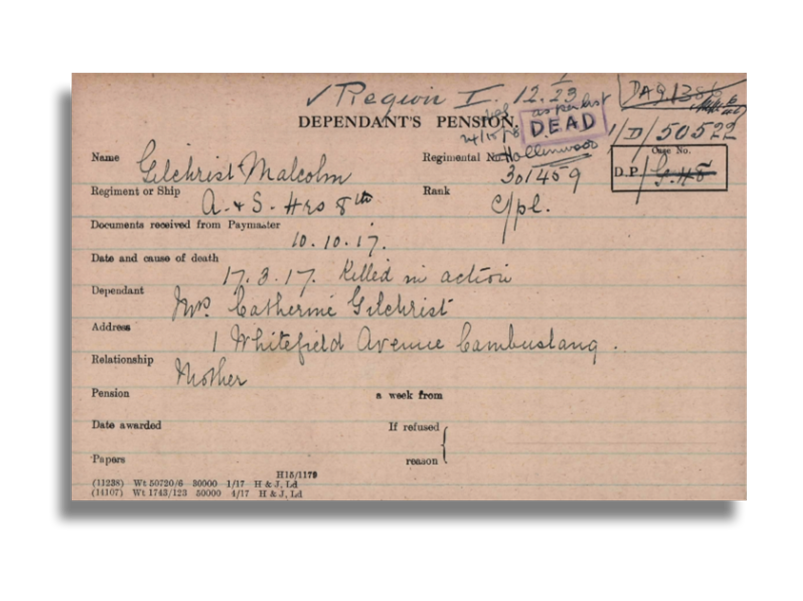 ✓ Region I. 12.23
as per list
DEPENDANT'S PENSION.
DEAD
1/D/50522
Name Gilchrist Malcolm
Regimental No. 301459
Hollinwood
Case No.
D.P. G.H8
Regiment or Ship A. & S. Hrs 8th
Rank C/pl.
Documents received from Paymaster 10.10.17.
Date and cause of death 17.3.17. Killed in action
Dependant Mrs. Catherine Gilchrist
Address 1 Whitefield Avenue Cambuslang.
Relationship Mother
Pension a week from
Date awarded If refused
Papers reason
H15/1179
(11238) Wt 50720/6 30000 1/17 H & J, Ld
(14107) Wt 1743/123 50000 4/17 H & J, Ld